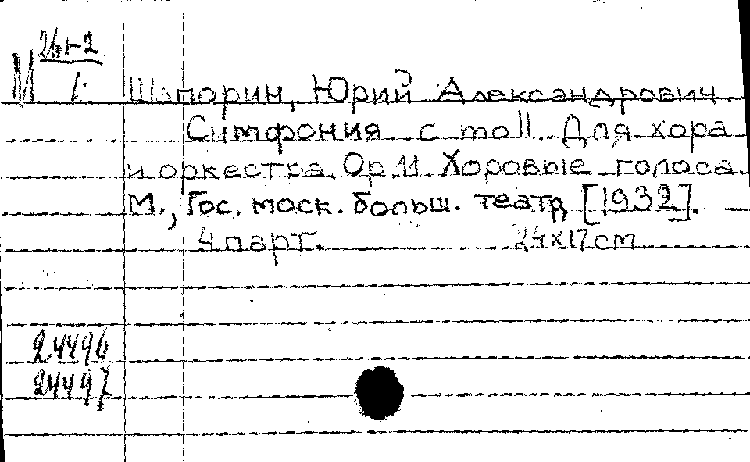 М 241-2
1:
Шапорин, Юрий Александрович
Симфония c moll. Для хора
и оркестра. Op. 11. Хоровые голоса.
М., Гос. моск. больш. театр, [1932].
4 парт. 24x17 cm
24496
24497